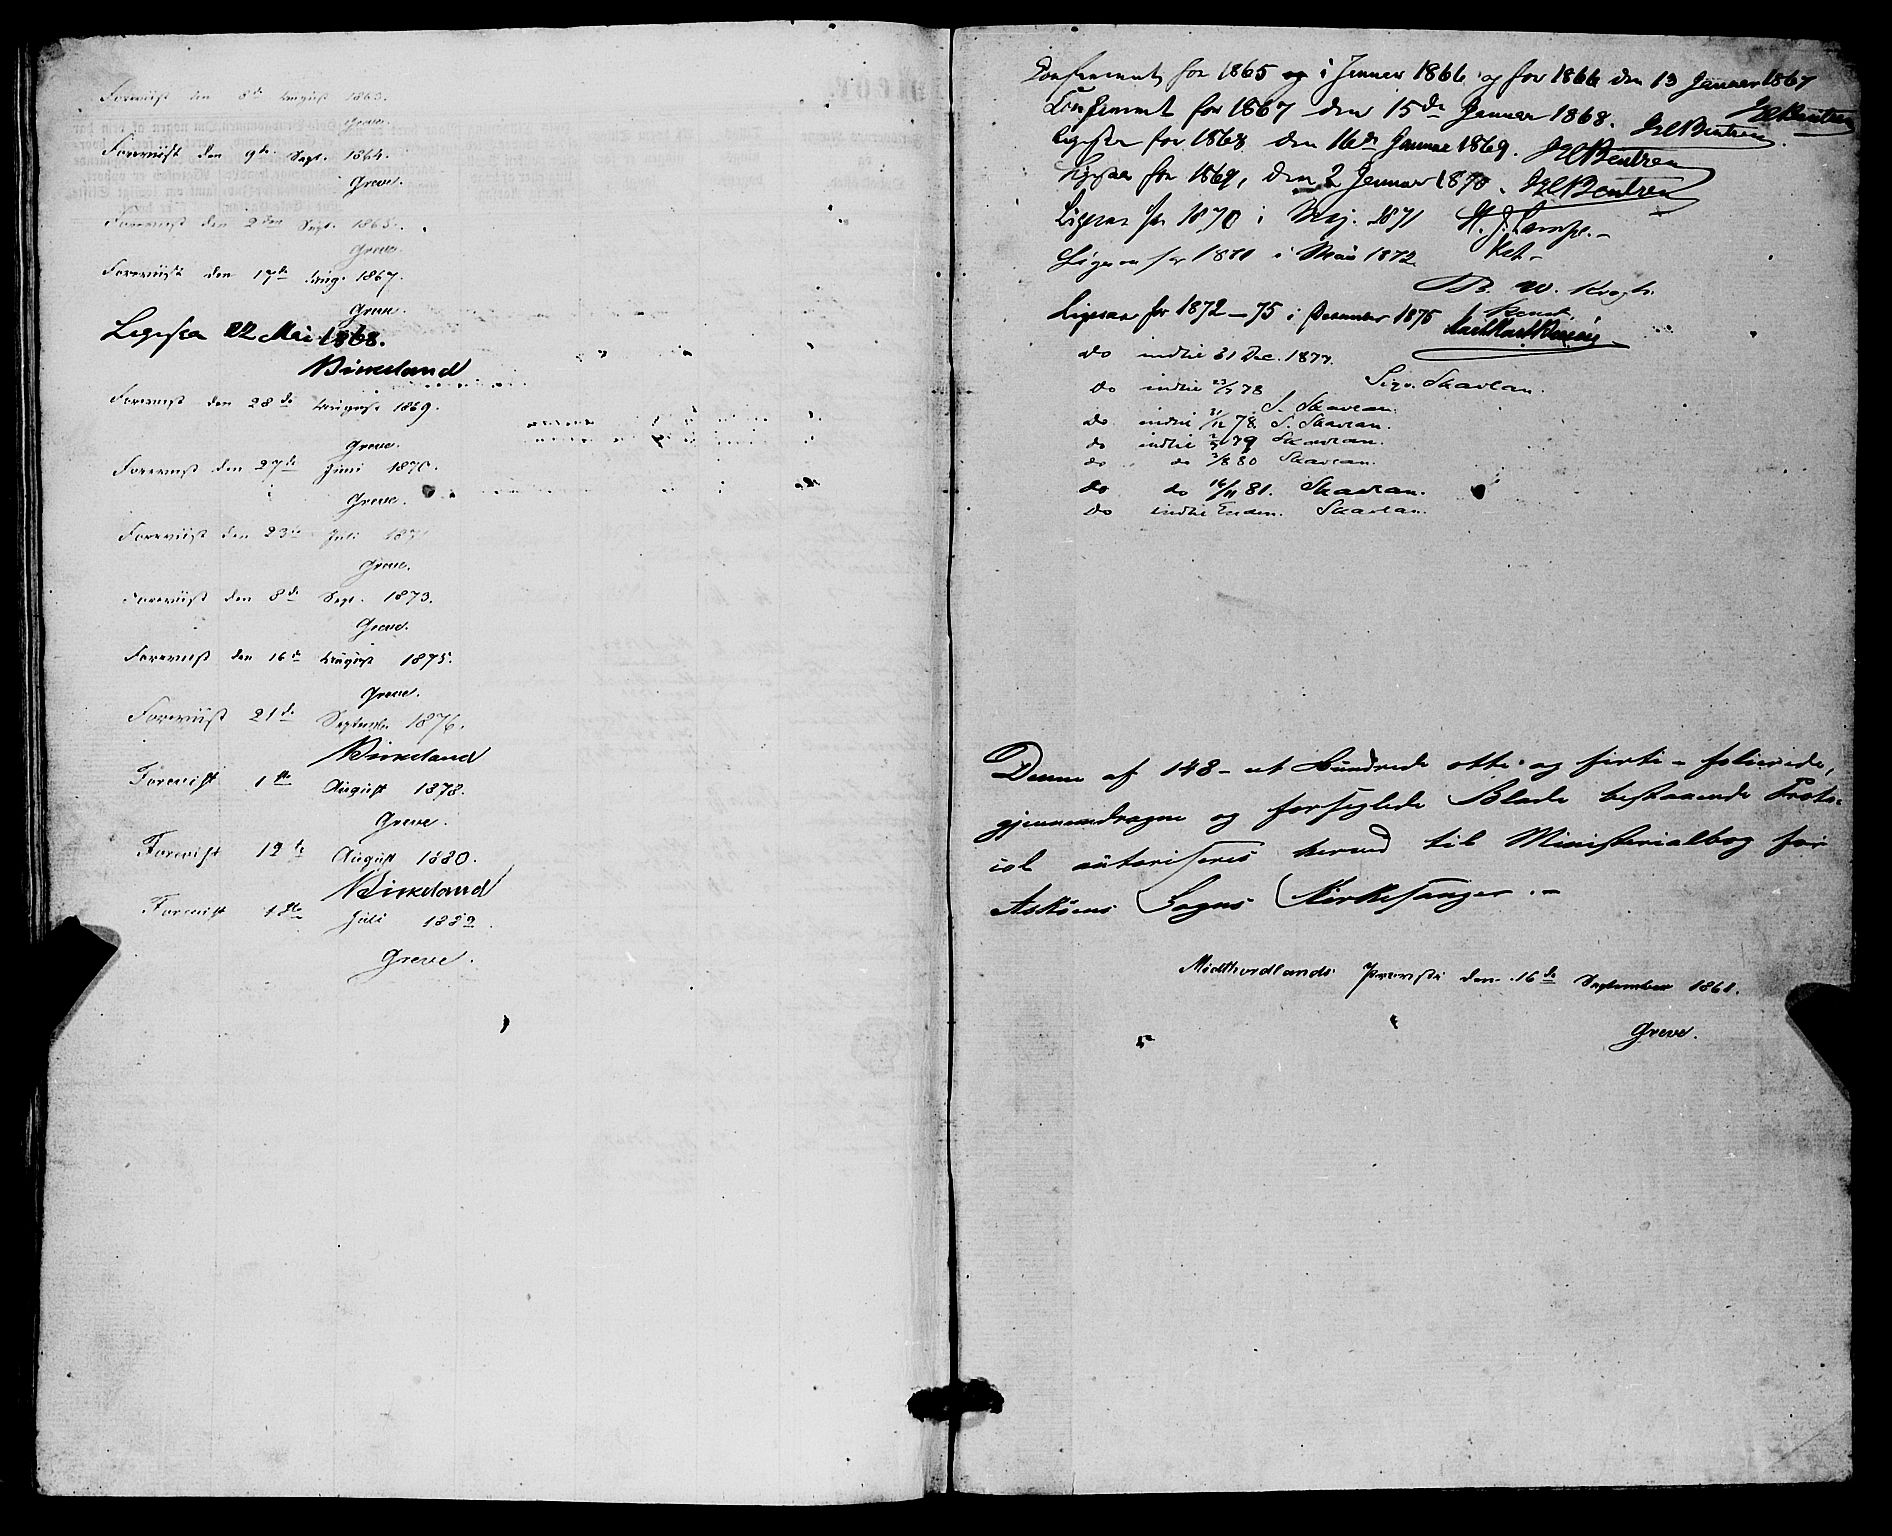 Foreviist den 8de August 1863.
Greve.
Foreviist den 9de Sept. 1864.
Greve.
Foreviist den 2den Sept. 1865.
Greve.
Foreviist den 17de Aug. 1867.
Greve.
Ligesaa 22 Mai 1868.
Birkeland
Foreviist den 28de August 1869.
Greve.
Foreviist den 27de Juni 1870.
Greve.
Foreviist den 23de Juli 187
Greve.
Foreviist den 8de Sept. 1873.
Greve.
Foreviist den 16de August 1875.
Greve.
Foreviist 21de September 1876.
Birkeland
Forevist 1ste August 1878.
Greve.
Forevist 12te August 1880.
Birkeland
Forevist 1ste Juli 1882.
Greve.
Confereret for 1865 og i Januar 1866 og for 1866 den 13 Januar 1867
Bentzen
Confereret for 1867 den 15de Januar 1868. Bentzen.
Ligesaa for 1868 den 16de Januar 1869. Bentzen
Ligesaa for 1869, den 2 Januar 1870. Bentzen
Ligesaa for 1870 i Maj. 1871
Ligesaa for 1871 i Mai 1872
W. Krogh.
Ligesaa for 1872-75 i December 1875
do indtil 31 Dec. 1877.
Sigv. Skavlan.
do indtil 23/7 78
S. Skavlan.
do indtil 31/12 78 S. Skavlan.
do indtil 79 Skavlan.
do do 2/8 80 Skavlan.
do do 16/11 81. Skavlan.
do indtil Enden. Skavlan.
Denne af 148 - et Hundrede otte og firti - folierede,
gjennemdragne og forseglede Blade bestaaende Proto-
col autoriseres herved til Ministerialbog for
Askøens Sogns Kirkesanger.-
Midthordlands Provsti den 16de September 1861.
Greve.